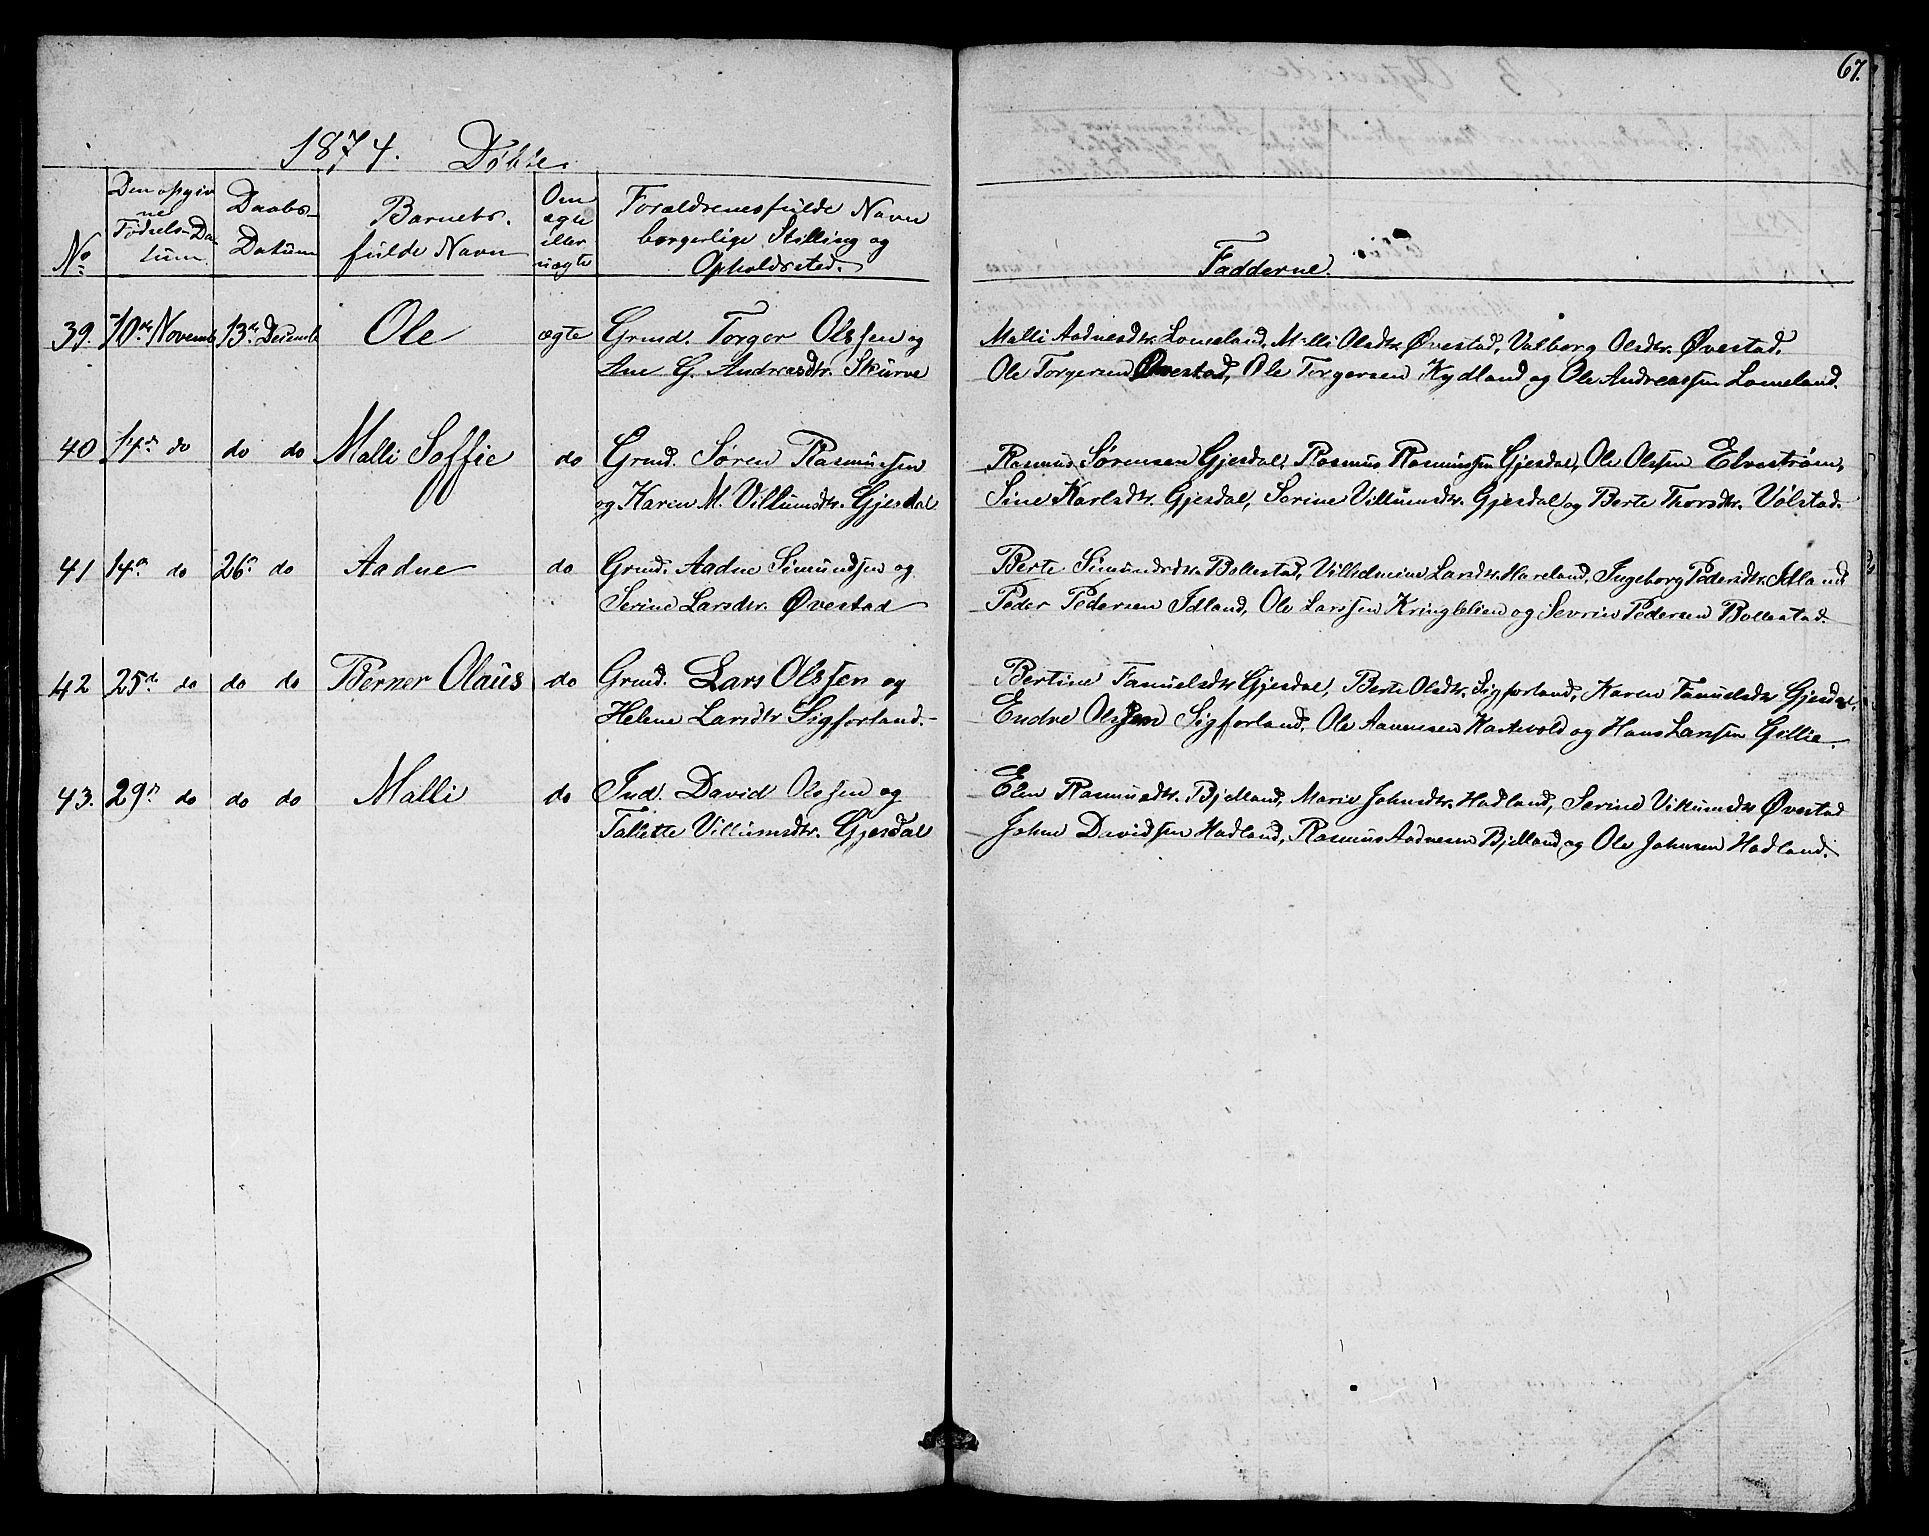 67.
1874. Döbte
No
Den opgiv
ne
Fødsels-Da-
tum.
Daabs-
Datum
Barnets
fulde Navn
Om
ægte
eller
uægte
Forældrenes fulde Navn
borgerlige Stilling og
Opholdssted.
Fadderne.
39. 10de Novemb 13de Decemb Ole ægte Grmd. Torger Olssen og
Ane G. Andreasdtr. Skurve
Malli Aadnesdtr. Lomeland, Malli Olsdtr. Øvestad, Valborg Olsdtr. Øvestad,
Ole Torgersen Øvestad, Ole Torgersen Kydland og Ole Andreassen Lomeland.
40 14de do do do Malli Soffie do Grmd. Søren Rasmussen
og Karen M. Villumsdtr. Gjesdal
Rasmus Sørensen Gjesdal, Rasmus Rasmussen Gjesdal, Ole Olssen Elvestrøm,
Sine Karlsdtr. Gjesdal, Serine Villumsdtr. Gjesdal og Berte Thorsdtr. Vølstad.
41 14de do 26de do Aadne do Grmd. Aadne Simundsen og
Serine Larsdtr. Øvestad
Berte Simundsdtr. Bollestad, Vilhelmine Larsdtr. Haveland, Ingeborg Pedersdtr. Idland
Peder Pedersen Idland, Ole Larssen Kringlelien og Sevrin Pedersen Bollestad.
42 25de do do do Berner Olaus do Grmd. Lars Olssen og
Helene Larsdtr. Sigforland.
Bertine Tanuelsdtr. Gjesdal, Berte Olsdtr. Sigforland, Karen Tanuelsdtr. Gjesdal,
Endre Olssen Sigforland, Ole Aanensen Kartevold og Hans Larssen Gillie.
43. 29de do do do Malli do Ind. David Olssen og
Tallette Villumsdtr. Gjesdal
Elen Rasmusdtr. Bjelland, Marie Johnsdtr. Hadland, Serine Villumsdtr. Øvestad
John Davidsen Hadland, Rasmus Aadnesen Bjelland og Ole Johnsen Hadland.